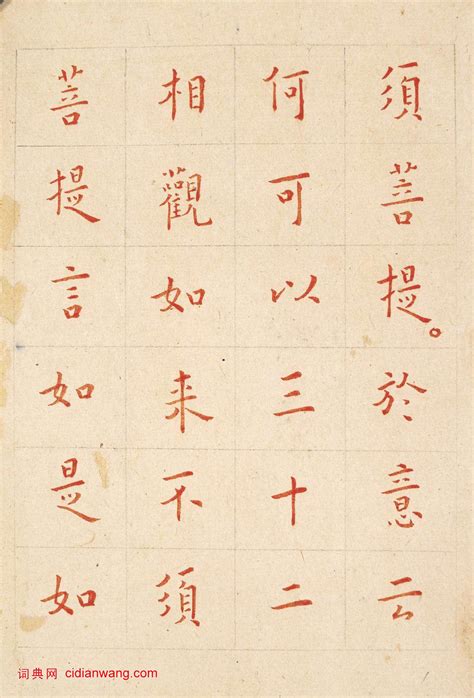 須菩提。於意云
何可以三十二
相觀如来不須
菩提言如是如
词典网 cidianwang.com